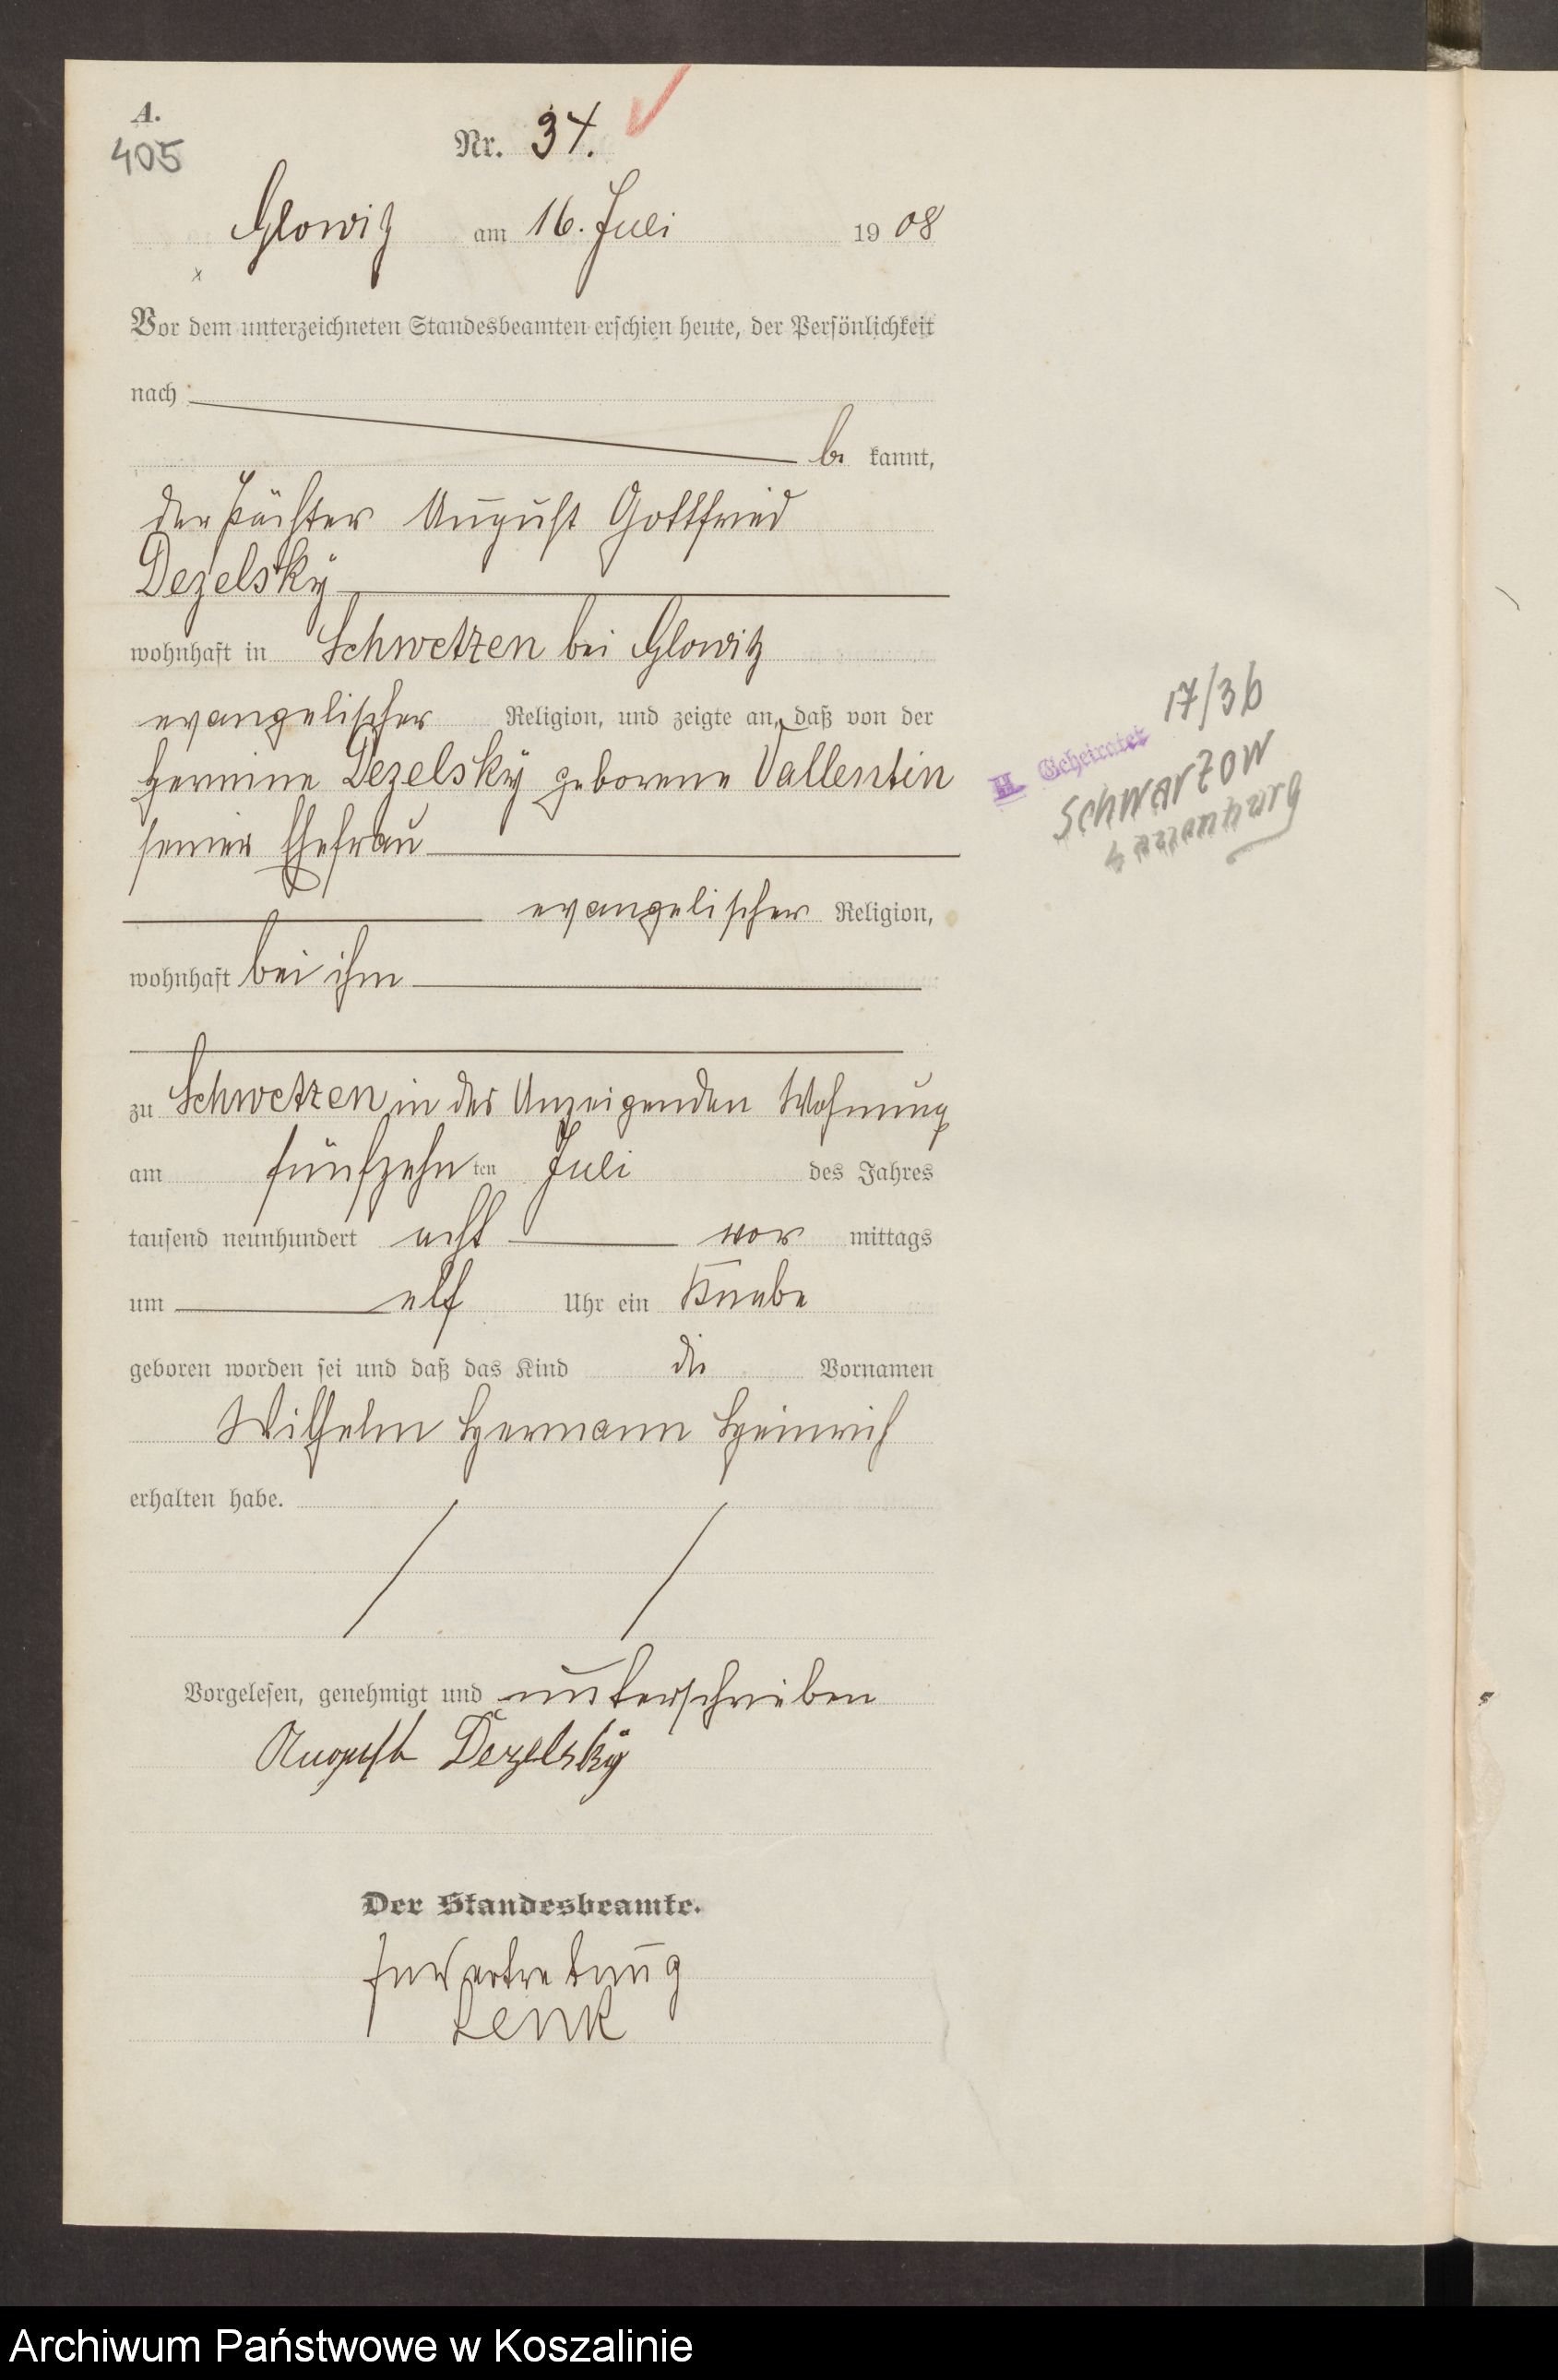 A.
405
Nr. 34.
Glowitz am 16. Juli 1908
Vor dem unterzeichneten Standesbeamten erschien heute, der Persönlichkeit
nach
be kannt,
der Pächter August Gottfried
Dezelsky
wohnhaft in Schwetzen bei Glowitz
evangelischer Religion, und zeigte an, daß von der
Hermine Dezelsky geborene Vallentin
seiner Ehefrau
evangelischer Religion,
wohnhaft bei ihm
zu Schwetzen in des Anzeigenden Wohnung
am fünfzehnten Juli des Jahres
tausend neunhundert acht vor mittags
um elf Uhr ein Knabe
geboren worden sei und daß das Kind die Vornamen
Wilhelm Hermann Heinrich
erhalten habe.
Vorgelesen, genehmigt und unterschrieben
August Dezelsky
Der Standesbeamte.
In Vertretung
Lenk
17/36
H. Geheiratet
Schwarzow
Archiwum Państwowe w Koszalinie